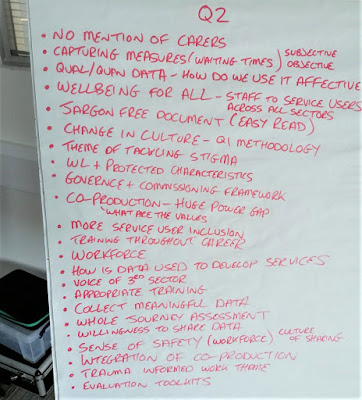 Q2
• NO MENTION OF CARERS
• CAPTURING MEASURES (WAITING TIMES) / SUBJECTIVE OBJECTIVE
• QUAL/QUAN DATA - HOW DO WE USE IT AFFECTIVE
• WELLBEING FOR ALL - STAFF TO SERVICE USERS
ACROSS ALL SECTORS
• JARGON FREE DOCUMENT (EASY READ)
• CHANGE IN CULTURE - QI METHODOLOGY
• THEME OF TACKLING STIGMA
• WL + PROTECTED CHARACTERISTICS
• GOVERNCE + COMMISSIONING FRAMEWORK
• CO-PRODUCTION - HUGE POWER GAP
WHAT ARE THE VALUES
• MORE SERVICE USER INCLUSION
• TRAINING THROUGHOUT CAREER
• WORKFORCE
• HOW IS DATA USED TO DEVELOP SERVICES
• VOICE OF 3RD SECTOR
• APPROPRIATE TRAINING
• COLLECT MEANINGFUL DATA
• WHOLE JOURNEY ASSESSMENT
• WILLINGNESS TO SHARE DATA
• SENSE OF SAFETY (WORKFORCE) CULTURE OF SHARING
• INTEGRATION OF CO-PRODUCTION
• TRAUMA INFORMED WORK THEME
• EVALUATION TOOLKITS